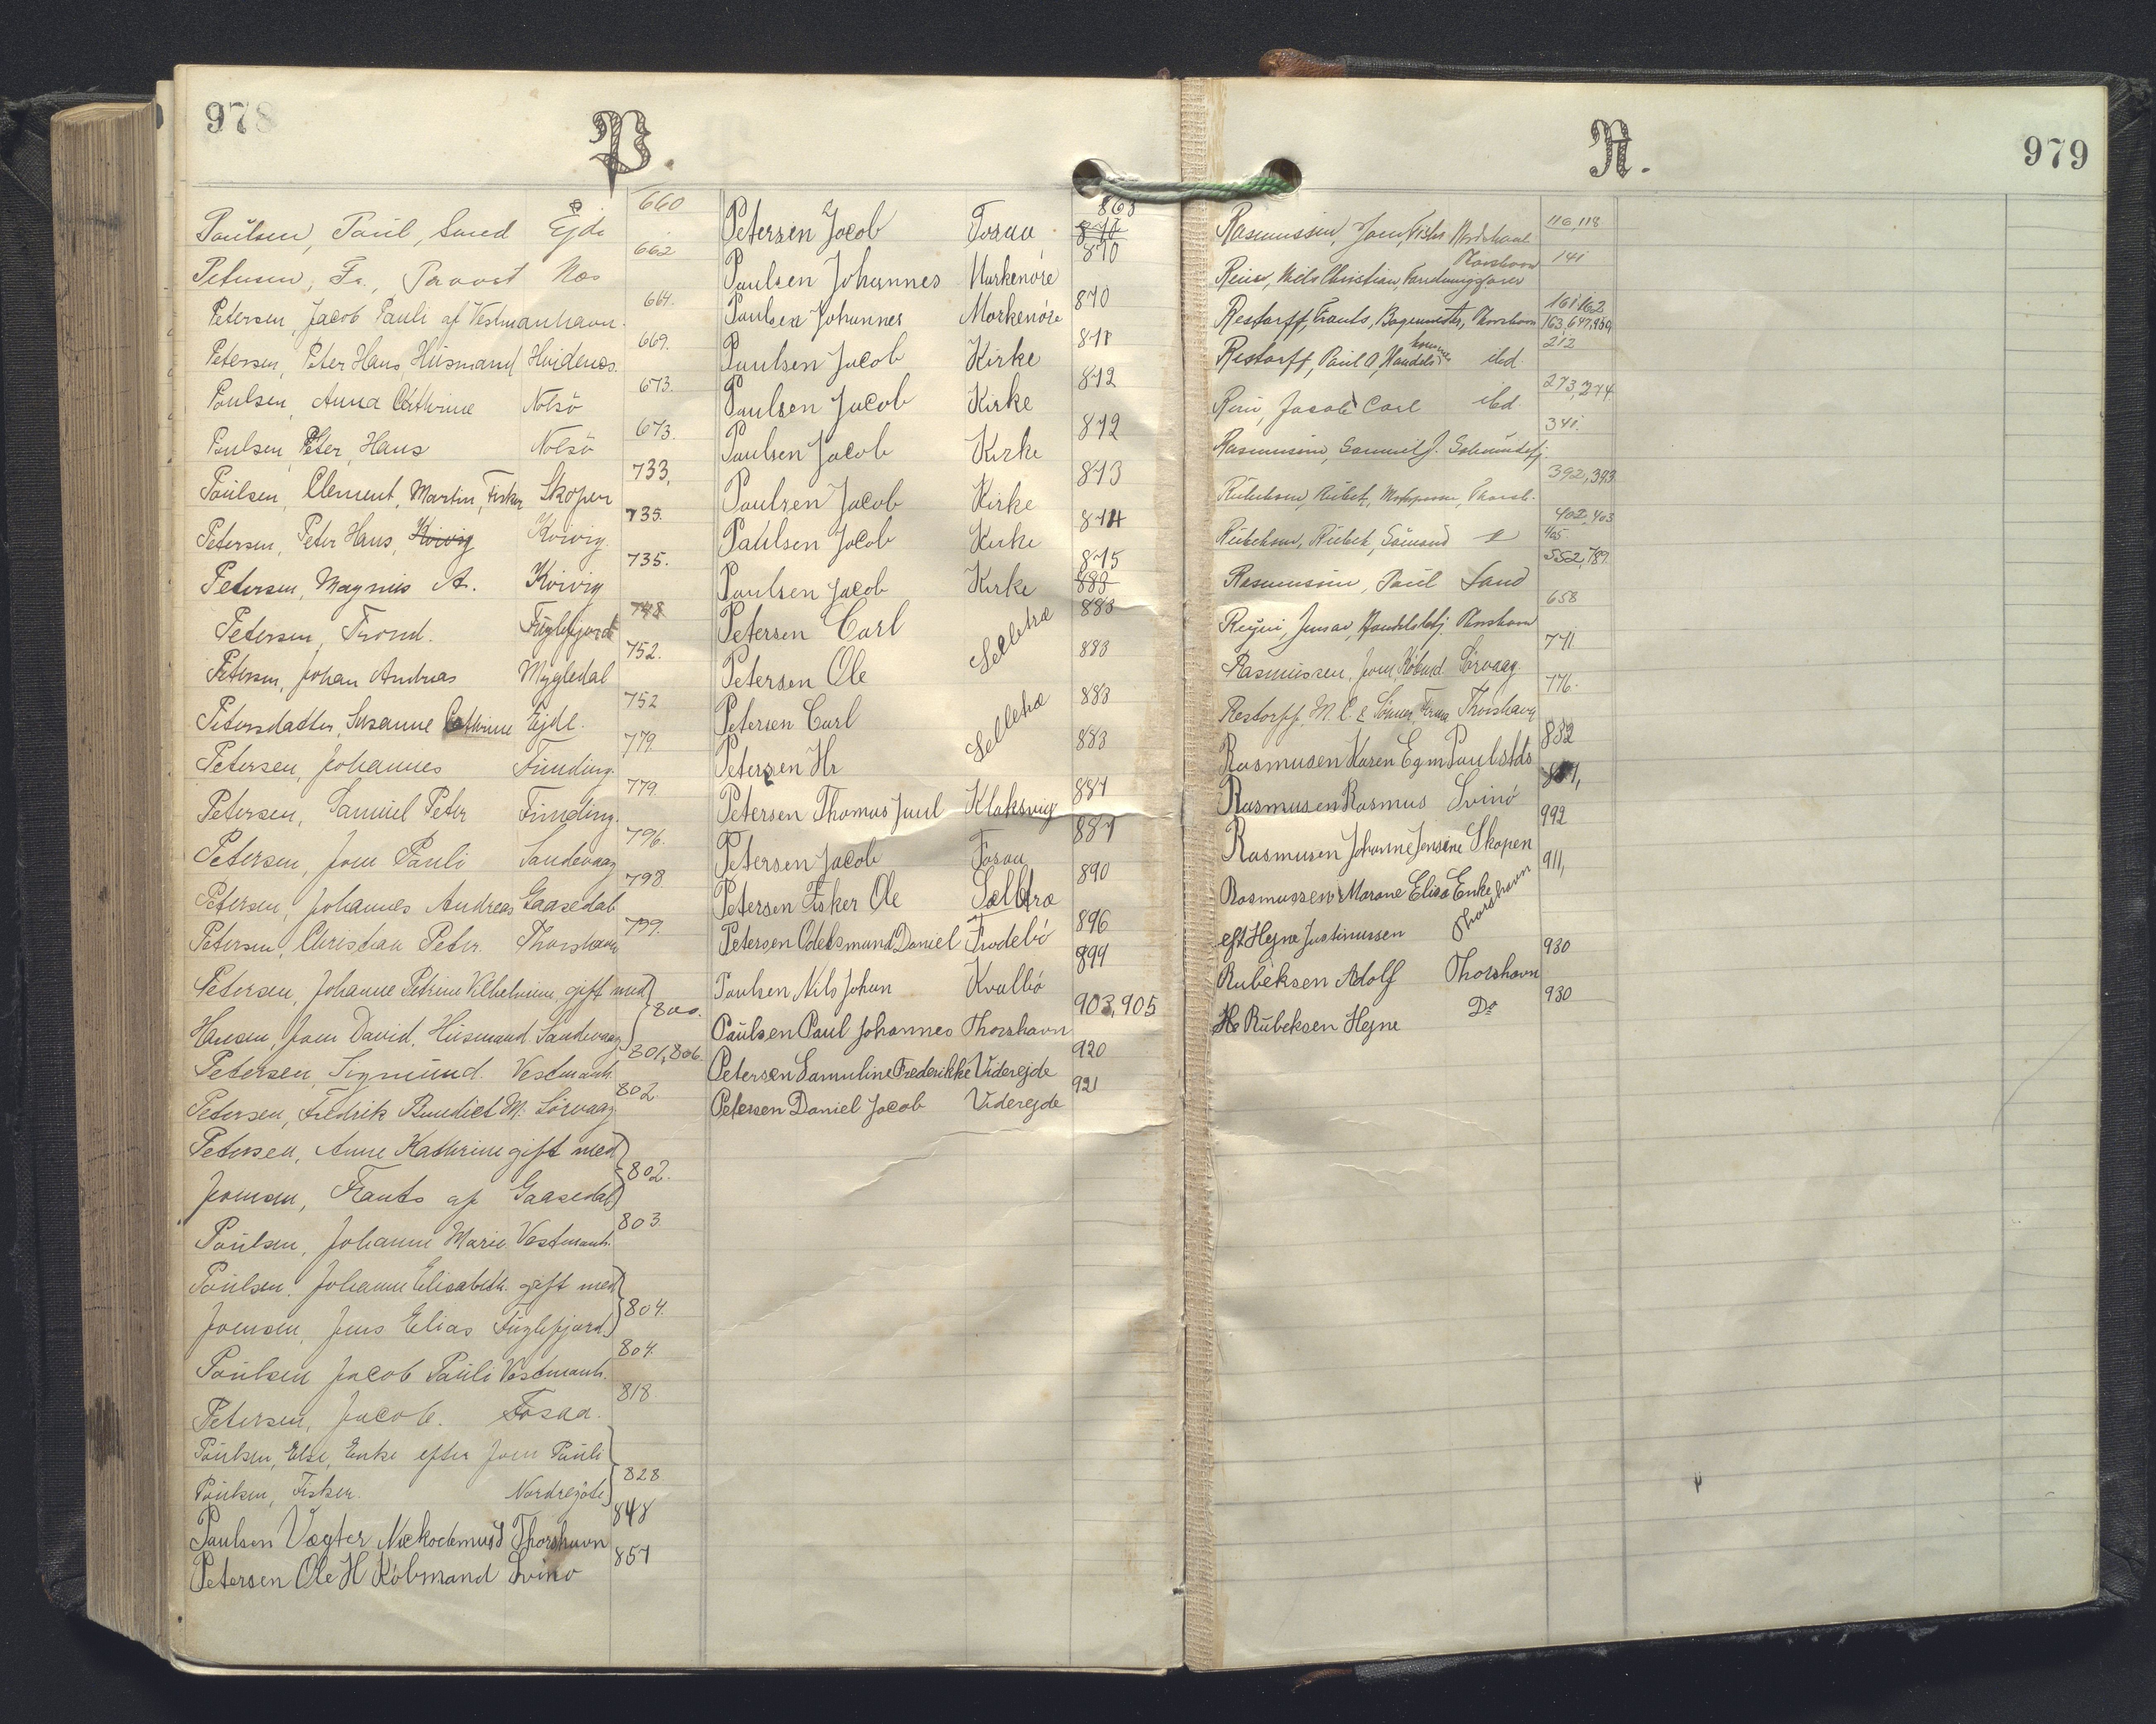 978
P.
Poulsen, Paul, Sand Ejde 660
Petersen, Fr., Provst Næs 662
Petersen, Jacob Pauli af Vestmanhavn. 664.
Petersen, Peter Hans, Husmand Hvidenæs. 669.
Poulsen, Anna Cathrine Nolsö 673.
Poulsen, Peter, Hans Nolsö 673.
Poulsen, Clement, Martin, Fisker Skopen 733,
Petersen, Peter Hans, Kvivig Kvivig. 735.
Petersen, Magnus A. Kvivig 735.
Petersen, Trond. Fuglefjord 748
Petersen, Johan Andreas Mygledal 752.
Petersdatter, Susanne Cathrine Ejde. 752
Petersen, Johannes Funding. 779.
Petersen, Samuel Peter Funding. 779.
Petersen, Joen Pauli Sandevaag 796.
Petersen, Johannes Andreas Gaasedal 798.
Petersen, Christian Peter. Thorshavn 799.
Petersen, Johanne Petrine Vilhelmine, gift med
Hansen, Joen David, Husmand. Sandevaag 800.
Petersen, Sigmund. Vestmanh. 801, 806.
Petersen, Fredrik Benedict M. Sörvaag. 802.
Petersen, Anne Kathrine gift med
Joensen, Frants af Gaasedal 802.
Poulsen, Johanne Marie Vestmanh. 803.
Poulsen, Johanne Elisabeth. gift med
Joensen, Jens Elias Fuglefjord. 804.
Poulsen Jacob Pauli Vestmanh. 804.
Petersen, Jacob. Fosaa. 818.
Poulsen, Else, Enke efter Joen Pauli
Poulsen, Fisker. Nordregöte 828.
Paulsen Vægter Nækodemusd Thorshavn 848
Petersen Ole H Köbmand Svinö 851
Petersen Jacob Fosaa 865
Paulsen Johannes Norkenöre 870
Paulsen Johannes Morkenöre 870
Paulsen Jacob Kirke 871
Paulsen Jacob Kirke 872
Paulsen Jacob Kirke 872
Paulsen Jacob Kirke 873
Paulsen Jacob Kirke 874
Paulsen Jacob Kirke 875
883
Petersen Carl Selletræ 883
Petersen Ole 883
Petersen Carl Selletræ 883
Petersen Hr 883
Petersen Thomas Juul Klaksvig 881
Petersen Jacob Fosaa 887
Petersen Fisker Ole Selletræ 890
Petersen Odelsmand Daniel Frodebö 896
Paulsen Nils Johan Kvalbö 899
Paulsen Paul Johannes Thorshavn 903, 905
Petersen Samuline Frederikke Viderejde 920
Petersen Daniel Jacob Viderejde 921
979
R.
Rasmussen, Joen, Fisker 116, 118
Thorshavn 141
Reius, Niels Christian,
Restorff, Frants, Bagermester, Thorshavn 161, 162 163, 647, 950
Restorff, Paul O, Handels ibd. 212
Jacob Carl ibd 273, 274
Rasmussen, Samuel J. 341.
Rubeksen, Rubek, 392, 393
Rubeksen, Rubek, Sömand 402, 403 405.
Rasmussen, Paul Sand 552, 789
Jensar, Handelsbetj. Thorshavn 658
Rasmussen, Joen, Köbmd. Sörvaag 771.
Restorff, M. C. & Sönner, Firma Thorshavn 776.
Rasmusen Karen Egm Paulsdts 832
Rasmusen Rasmus Svinö
Rasmusen Johanne Jensine Skopen 992
Rasmussen Marane Elisa Enke 911,
eft Hejne Justinussen Thorshavn
Rubeksen Adolf Thorshavn 930
Rubeksen Hejne Do 930